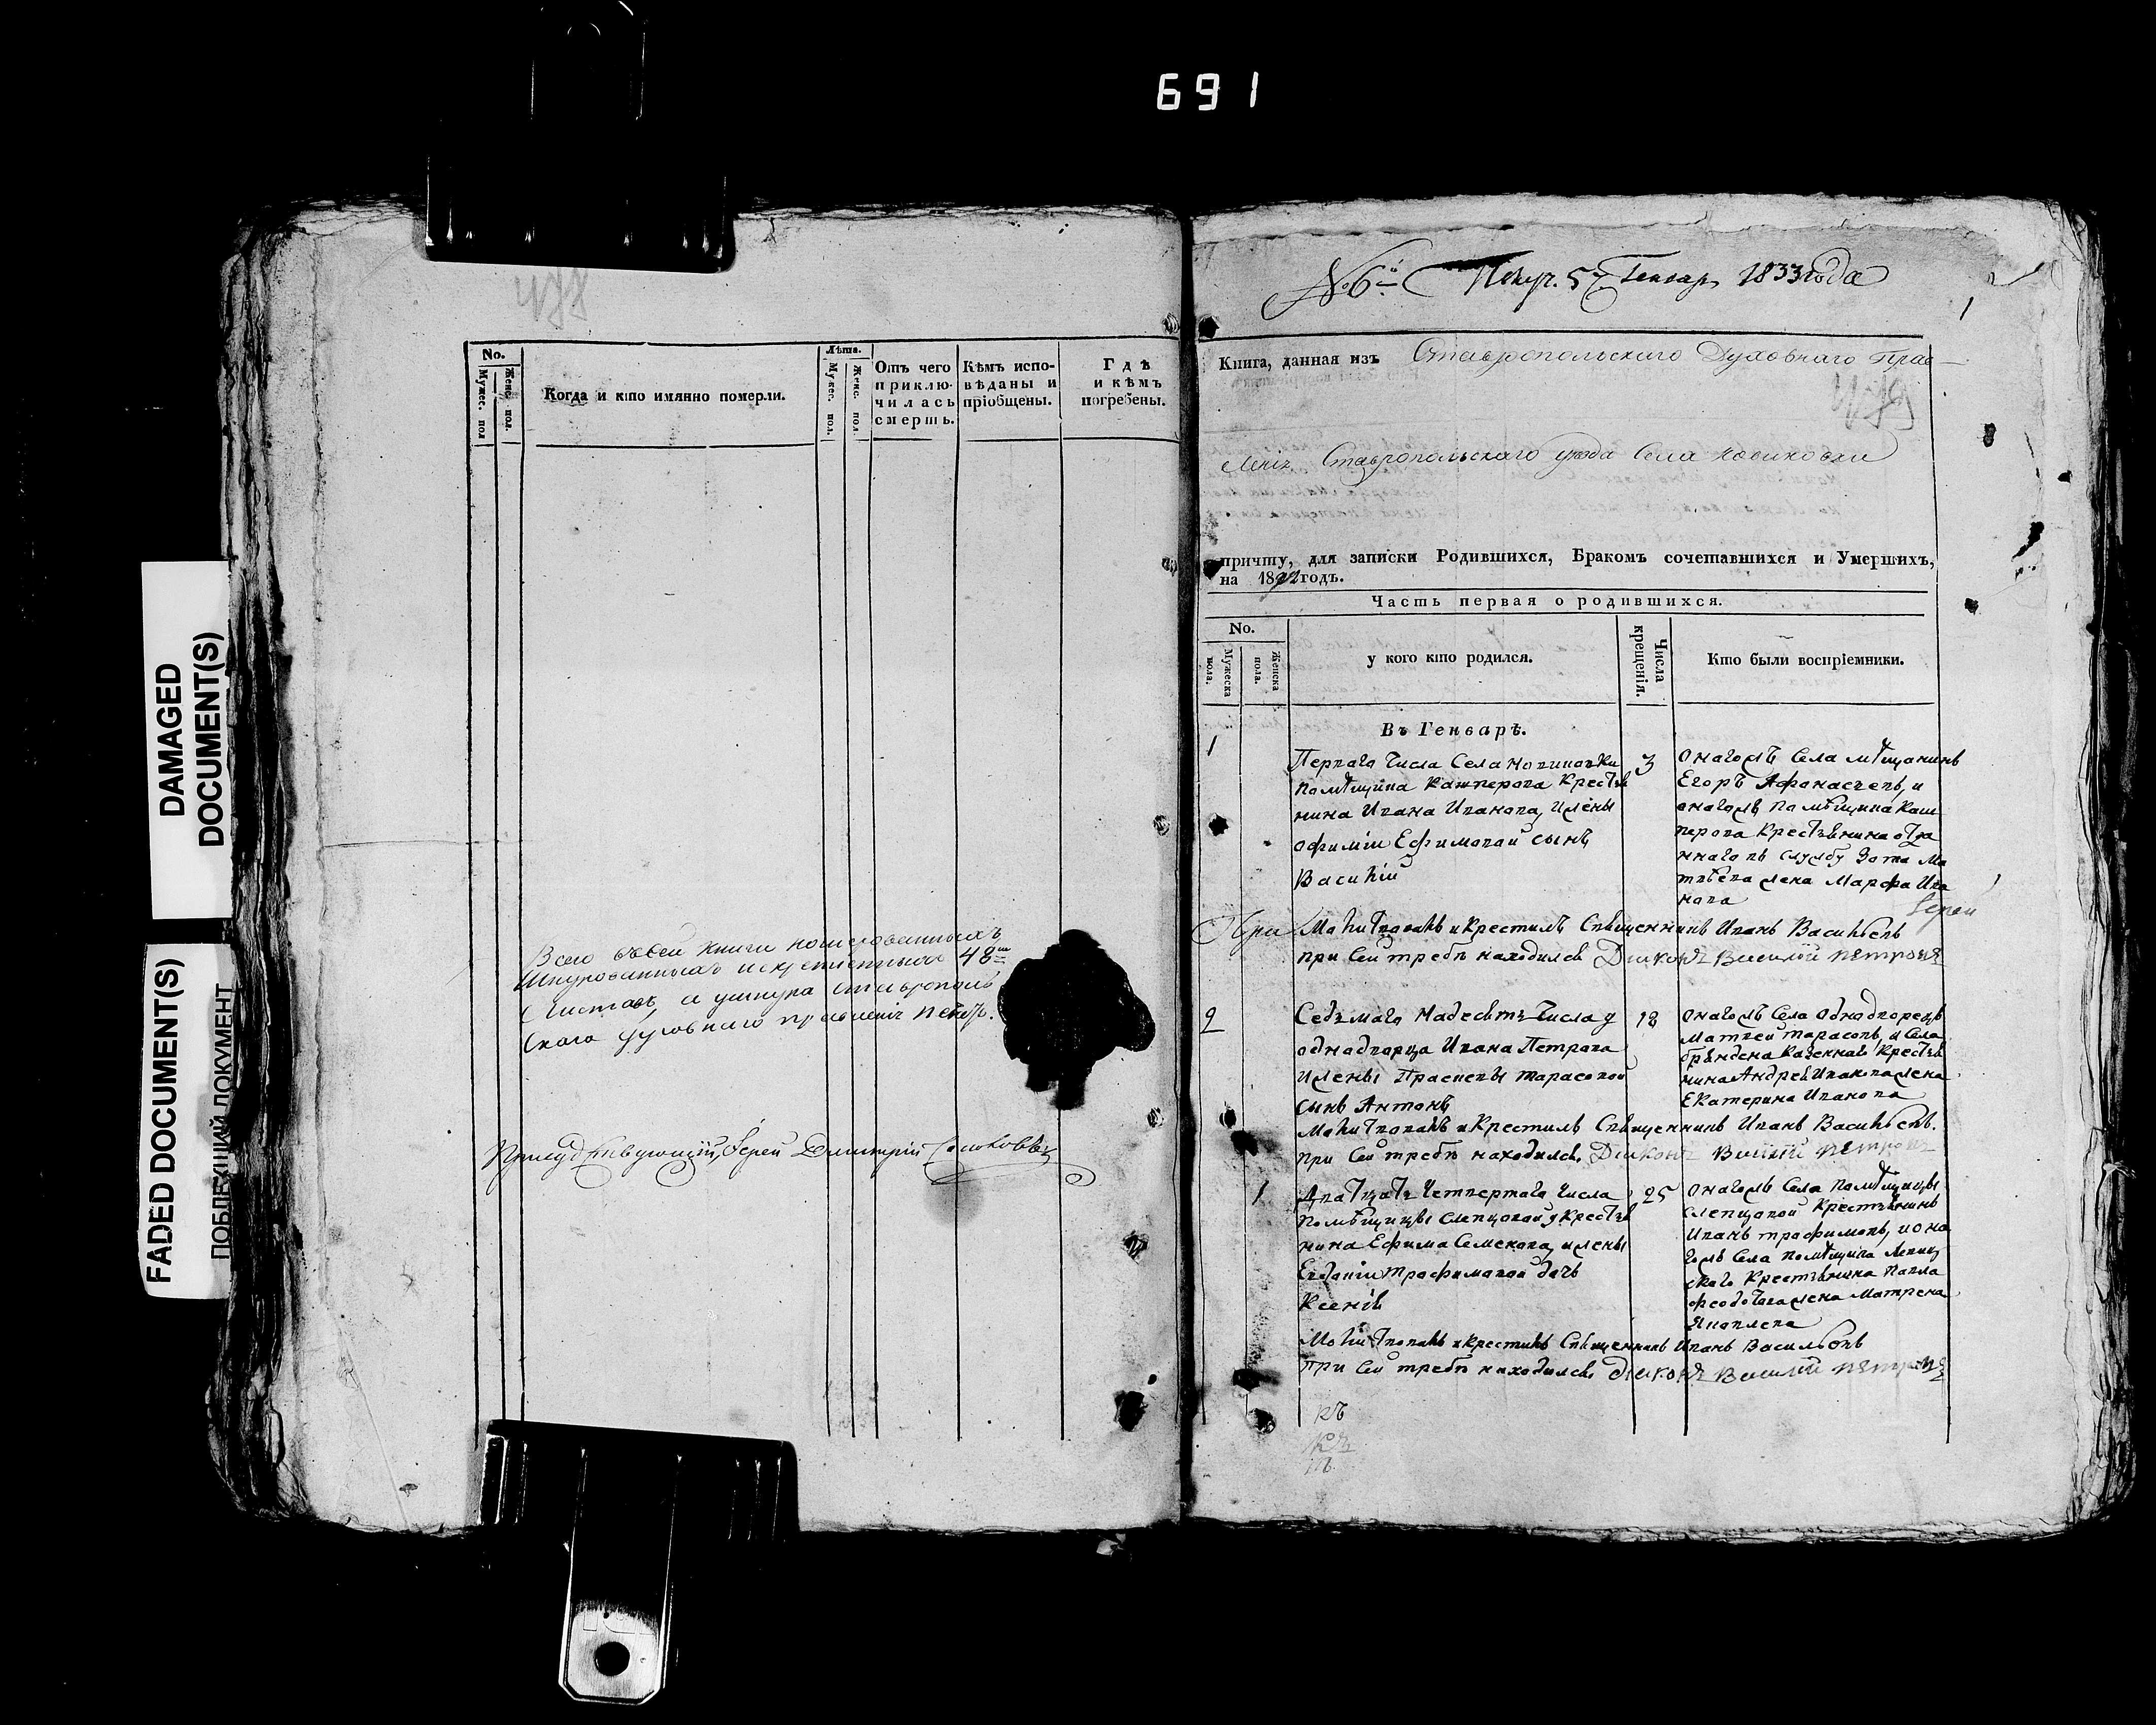 691
DAMAGED
DOCUMENT(S)
FADED DOCUMENT(S)
ПОБЛЕКШИЙ ДОКУМЕНТ
No.
Мужес. пол
Женс. пол.
Когда и кто имянно померли.
Лѣта.
Мужес. пол.
Женс. пол.
Отъ чего
приклю-
чилась
смерть.
Кѣмъ испо-
вѣданы и
пріобщены.
Гдѣ
и кѣмъ
погребены.
Всего въ сей книги номерованныхъ
Шнурованныхъ 48
Листовъ, и у шнура Ставрополь
скаго Духовнаго правленія печать.
Присудствующій, Іерей Димитрій
№ 6й Получ. 5 Генваря 1833 года
1
Книга, данная изъ Ставропольскаго Духовнаго Прав
479
ленія Ставропольскаго уѣзда Села Новиковки
причту, для записки Родившихся, Бракомъ сочетавшихся и Умершихъ,
на 1832 годъ.
Часть первая о родившихся.
No.
Мужеска
пола.
Женска
пола.
у кого кто родился.
Числа
крещенія.
Кто были воспріемники.
Въ Генварѣ.
1
Перваго Числа Села Новиковки
помѣщика Крестья
нина Ивана Иванова, и жены
Офиміи Ефимовой сынъ
Василій
3
Онагожъ Села мѣщанинъ
Егоръ Афонасьевъ, и
онагожъ помѣщика
Крестьянина отда
ннаго въ службу Зота Ма
твѣева жена Марфа Ива
нова
Іерей
При Молитвовалъ и крестилъ Священникъ Иванъ Васильевъ
при сей требѣ находился Діяконъ Василій Петровъ
2
Седьмаго Надесять Числа у
однадворца Ивана Петрова
и жены Прасковьи Тарасовой
сынъ Антонъ
18
Онагожъ Села Однадворецъ
Матвей Тарасовъ, и Села
Казеннаго Крестья
нина Андрея Иванова жена
Екатерина Иванова
Молитвовалъ и Крестилъ Священникъ Иванъ Васильевъ.
при сей требѣ находился Діяконъ Василій Петровъ
1
Двадцать Четвертаго Числа
помѣщицы Слепцовой у Крестья
нина Ефима Семенова, и жены
Евдокіи Трофимовой дочь
Ксенія
25
Онагожъ Села помѣщицы
Слепцовой Крестьянинъ
Иванъ Трофимовъ, и она
гожъ Села помѣщика
скаго Крестьянина Павла
Федотова жена Матрена
Яковлева
Молитвовалъ и крестилъ Священникъ Иванъ Васильевъ
при сей требѣ находился діяконъ Василій Петровъ